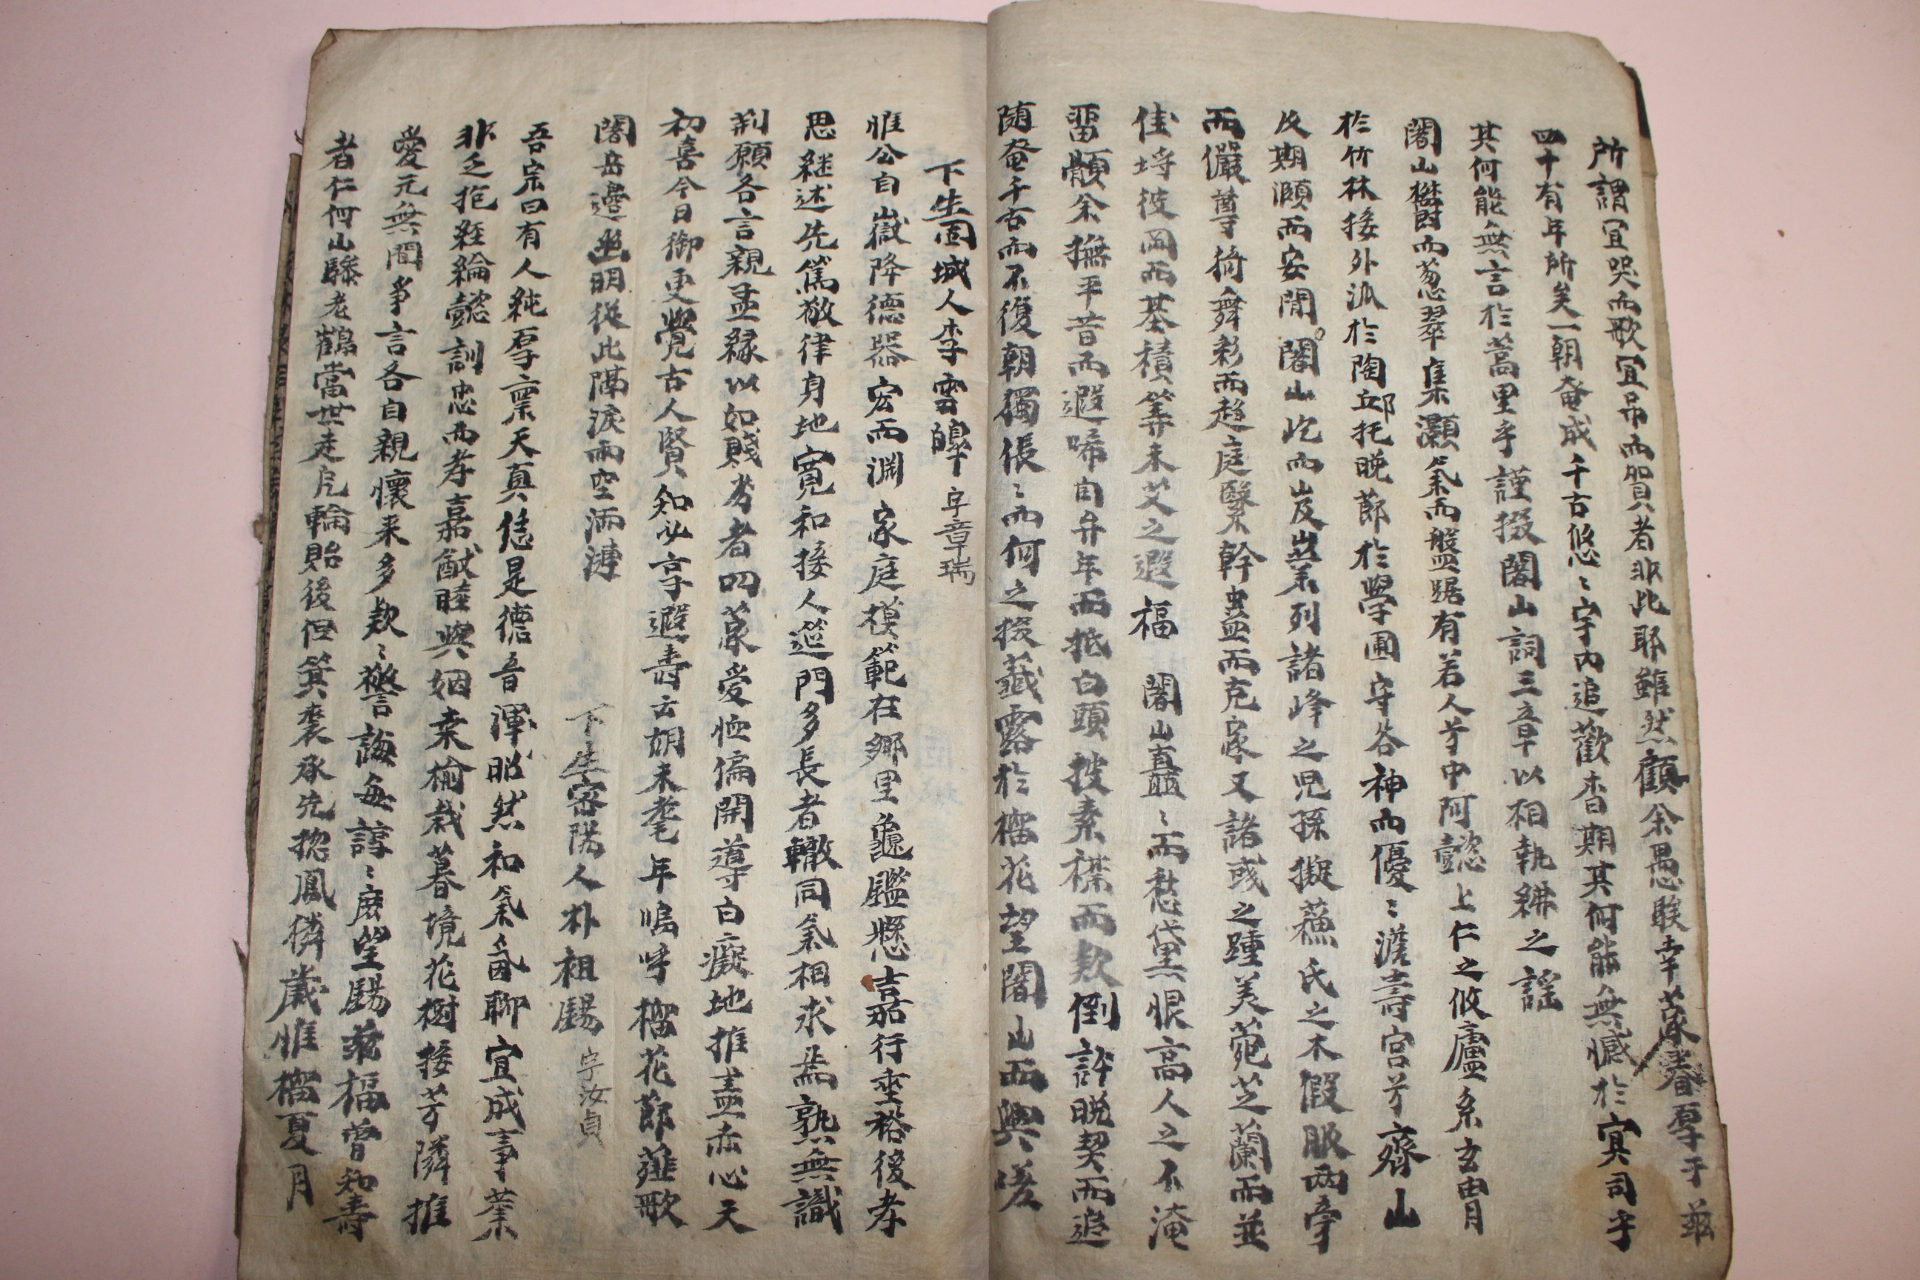 所謂宜哭而歌宜吊而賀者非此耶雖然顧余愚騃幸蒙春厚于玆
四十有年所矣一朝奄成千古悠〻宇內追歡杳期其何能無憾於冥司乎
其何能無言於蒿里乎謹掇闍山詞三章以相執紼之謠
闍山欝而葱翠集灝氣而盤踞有若人兮中阿懿上仁之攸廬系玄冑
於竹林接外派於陶邱托晩節於學圃守谷神而優〻澹壽宮兮齊山
及期頤而安閒闍山屹而岌嶪列諸峰之児孫擬蘓氏之木假服兩旁
而儼尊猗舞彩而趍庭繄幹蠱而克家又諸彧之踵美菀芝蘭而並
佳塒彼岡而基積等未艾之遐福闍山矗〻而愁黛恨高人之不淹
留顏余撫平昔而遐唏自弁年而抵白頭披素襟而欵倒許晩契而追
隨奄千古而不復朝獨倀〻而何之掇薤露於榴花望闍山而興嗟
下生固城人李雲皥 字章瑞
惟公自嶽降德器宏而淵家庭模範在鄉里龜鑑懸嘉行垂裕後孝
思継述先篤敬律身地寬和接人莚門多長者轍同氣相求焉孰無識
荊願各言親孟緣以如賤劣者叨蒙愛恤偏開導白癡地推盍赤心天
初喜今日御更覺古人賢知必享遐壽云胡未耄年嗚呼榴花節薤歌
闍岳邊幽明從此隔淚雨空洏漣
下生密陽人朴祖賜 字汝貞
吾宗曰有人純厚禀天真恁是德音渾昭然和氣氤聊宜成事業
非乏抱経綸懿訓忠而孝嘉猷睦與姻桒榆栽暮境花樹接芳隣推
愛元無間爭言各自親懷来多欵〻警誨每諄〻庶望賜玆福曾知壽
者仁何山驂老鶴當世走凡輪貽後但箕裘承先揔鳳獜歲惟榴夏月